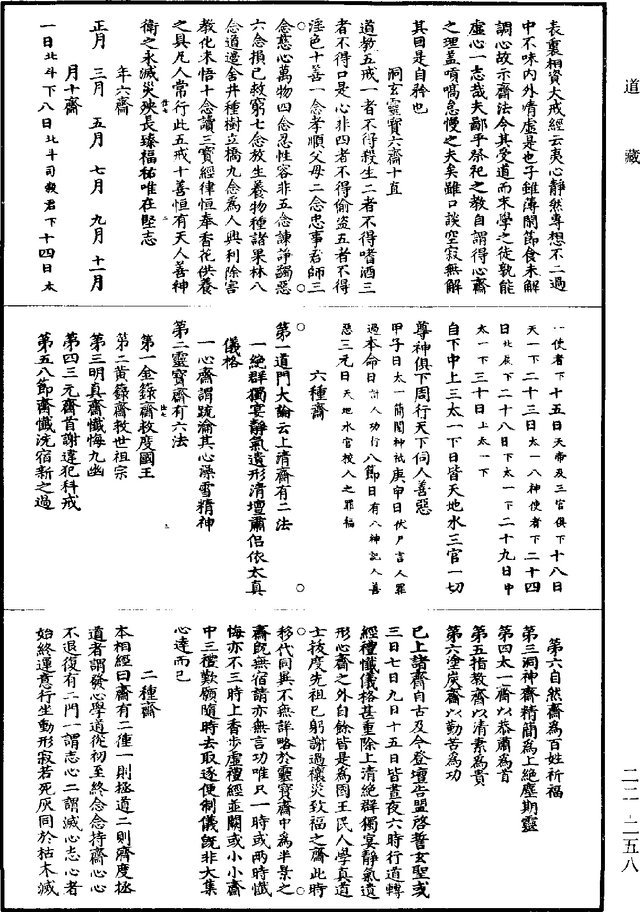 道藏
表裏相資大戒經云夷心靜然專想不二過
中不味内外清虛是也子雖薄閑節食未解
調心故示齋法令其受道而末學之徒孰能
虛心一志哉夫鄙乎祭祀之教自謂得心齋
之理蓋嗊嗃怠慢之夫矣雖口談空寂無解
其回是自矜也
洞玄靈寶六齋十直
道教五戒一者不得殺生二者不得嗜酒三
者不得口是心非四者不得偷盜五者不得
淫色十善一念孝順父母二念忠事君師三
念慈心萬物四念忍性容非五念諫諍蠲惡
六念損己救窮七念放生養物種諸果林八
念道邊舍井種樹立橋九念為人興利除害
教化未悟十念讀三寶經律恒奉香花供養
之具凡人常行此五戒十善恒有天人善神
衛之永滅災殃長臻福祐唯在堅志
年六齋
正月 三月 五月 七月 九月 十一月
月十齋
一日北斗下八日北斗司殺君下十四日太
一使者下十五日天帝及三官俱下十八日
天一下二十三日太一八神使者下二十四
日北辰下二十八日下太一下二十九日中
太一下三十日上太一下
自下中上三太一下日皆天地水三官一切
尊神俱下周行天下伺人善惡
甲子日太一簡閱神祇庚申日伏尸言人罪
過本命日計人功行八節日有八神記人善
惡三元日天地水官校人之罪福
六種齋
第一道門大論云上清齋有二法
一絶群獨宴靜氣遺形清壇肅侶依太真
儀格
一心齋謂疏瀹其心澡雪精神
第二靈寶齋有六法
第一金籙齋救度國王
第二黄籙齋救世祖宗
第三明真齋懺悔九幽
第四三元齋首謝違犯科戒
第五八節齋懺洗宿新之過
第六自然齋為百姓祈福
第三洞神齋精簡為上絶塵期靈
第四太一齋以恭肅為首
第五指教齋以清素為貴
第六塗炭齋以勤苦為功
已上諸齋自古及今登壇告盟啓誓玄聖或
三日七日九日十五日皆晝夜六時行道轉
經禮懺儀格甚重除上清絶群獨宴靜氣遺
形心齋之外自餘皆是為國王民人學真道
士拔度先祖已躬謝過禳災致福之齋此時
移代同異不無詳略於靈寶齋中為半景之
齋既無宿請亦無言功唯只一時或兩時懺
悔亦不三時上香步虛禮經並闕或小小齋
中三禮歎願隨時去取逐便制儀既非大集
心達而已
二種齋
本相經曰齋有二種一則拯道二則齋度拯
道者謂發心學道從初至終念念持齋心心
不退復有二門一謂志心二謂滅心志心者
始終運意行坐動形寂若死灰同於枯木滅
二二—二五八